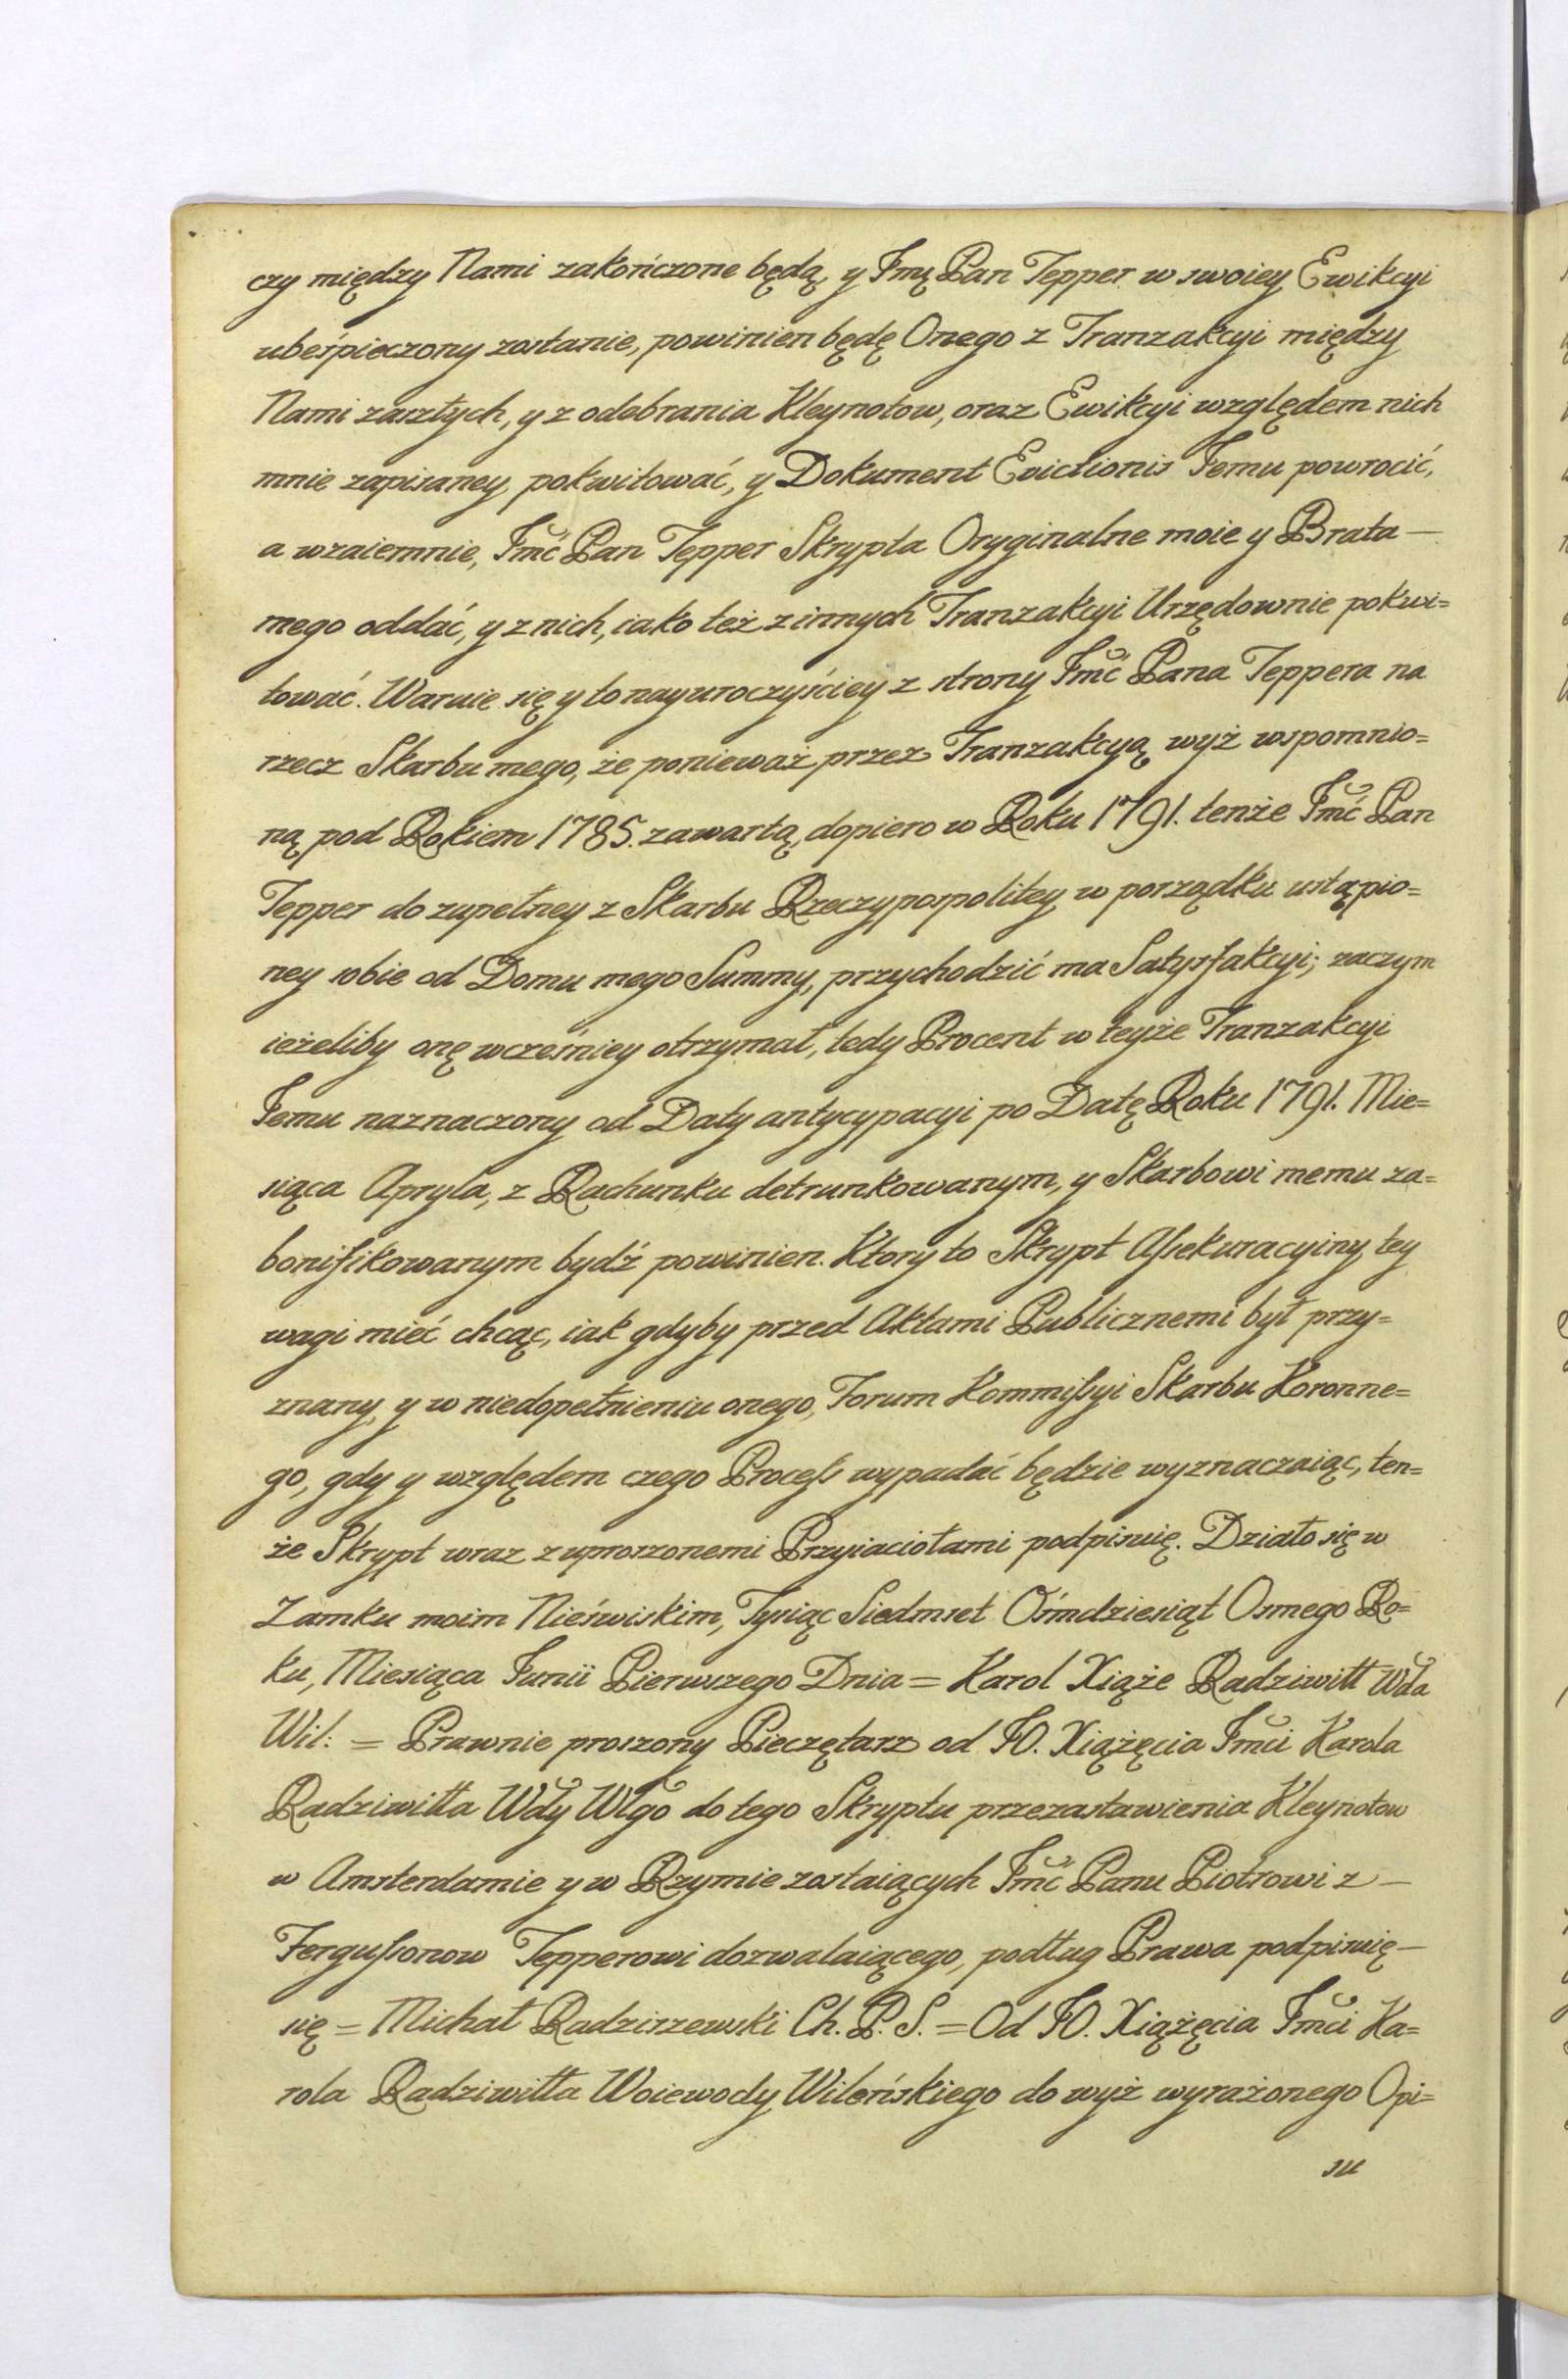 czy między Nami zakończone będą, y Jmę Pan Tepper w swoiey Ewikcyi
ubeśpieczony zostanie, powinien będę Onego z Tranzakcyi między
Nami zaszłych, y z odebrania Kleynotow, oraz Ewikcyi względem nich
mnie zapisaney, pokwitować, y Dokument Evictionis Jemu powrocić,
a wzaiemnie, Jmć Pan Tepper Skrypta Oryginalne moie y Brata —
mego oddać, y z nich, iako też z innych Tranzakcyi Urzędownie pokwi=
tować. Waruie się y to nayuroczyściey z strony Jmć Pana Teppera na
rzecz Skarbu mego, że ponieważ przez Tranzakcyą wyż wspomnio=
ną pod Rokiem 1785. zawartą, dopiero w Roku 1791. tenże Jmć Pan
Tepper do zupełney z Skarbu Rzeczypospolitey w porządku ustąpio=
ney sobie od Domu mego Summy, przychodzić ma Satysfakcyi; zaczym
ieżeliby onę wcześniey otrzymał, tedy Procent w teyże Tranzakcyi
Jemu naznaczony od Daty antycypacyi po Datę Roku 1791. Mie=
siąca Apryla, z Rachunku detrunkowanym, y Skarbowi memu za=
bonifikowanym bydź powinien. Ktory to Skrypt Aſsekuracyiny tey
wagi mieć chcąc, iak gdyby przed Aktami Publicznemi był przy=
znany, y w niedopełnieniu onego, Forum Kommiſsyi Skarbu Koronne=
go, gdy y względem czego Proceſs wypadać będzie wyznaczaiąc, ten=
że Skrypt wraz z uproszonemi Przyiaciołami podpisuię. Działo się w
Zamku moim Nieświskim, Tysiąc Siedmset Ośmdziesiąt Osmego Ro=
ku, Miesiąca Junii Pierwszego Dnia = Karol Xiąże Radziwiłł Wda
Wil: = Prawnie proszony Pieczętarz od JO. Xiążęcia Jmci Karola
Radziwiłła Wdy Wlgo do tego Skryptu przezastawienia Kleynotow
w Amsterdamie y w Rzymie zostaiących Jmć Panu Piotrowi z —
Ferguſsonow Tepperowi dozwalaiącego, podług Prawa podpisuię —
się = Michał Radziszewski Ch. P. S. = Od JO. Xiążęcia Jmci Ka=
rola Radziwiłła Woiewody Wileńskiego do wyż wyrażonego Opi=
su